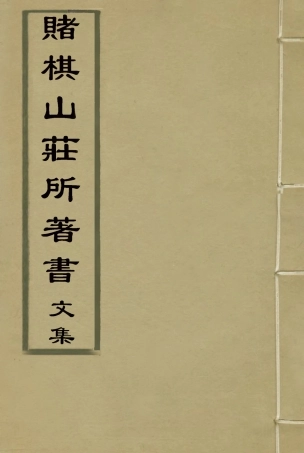 賭棋山莊所著書文集